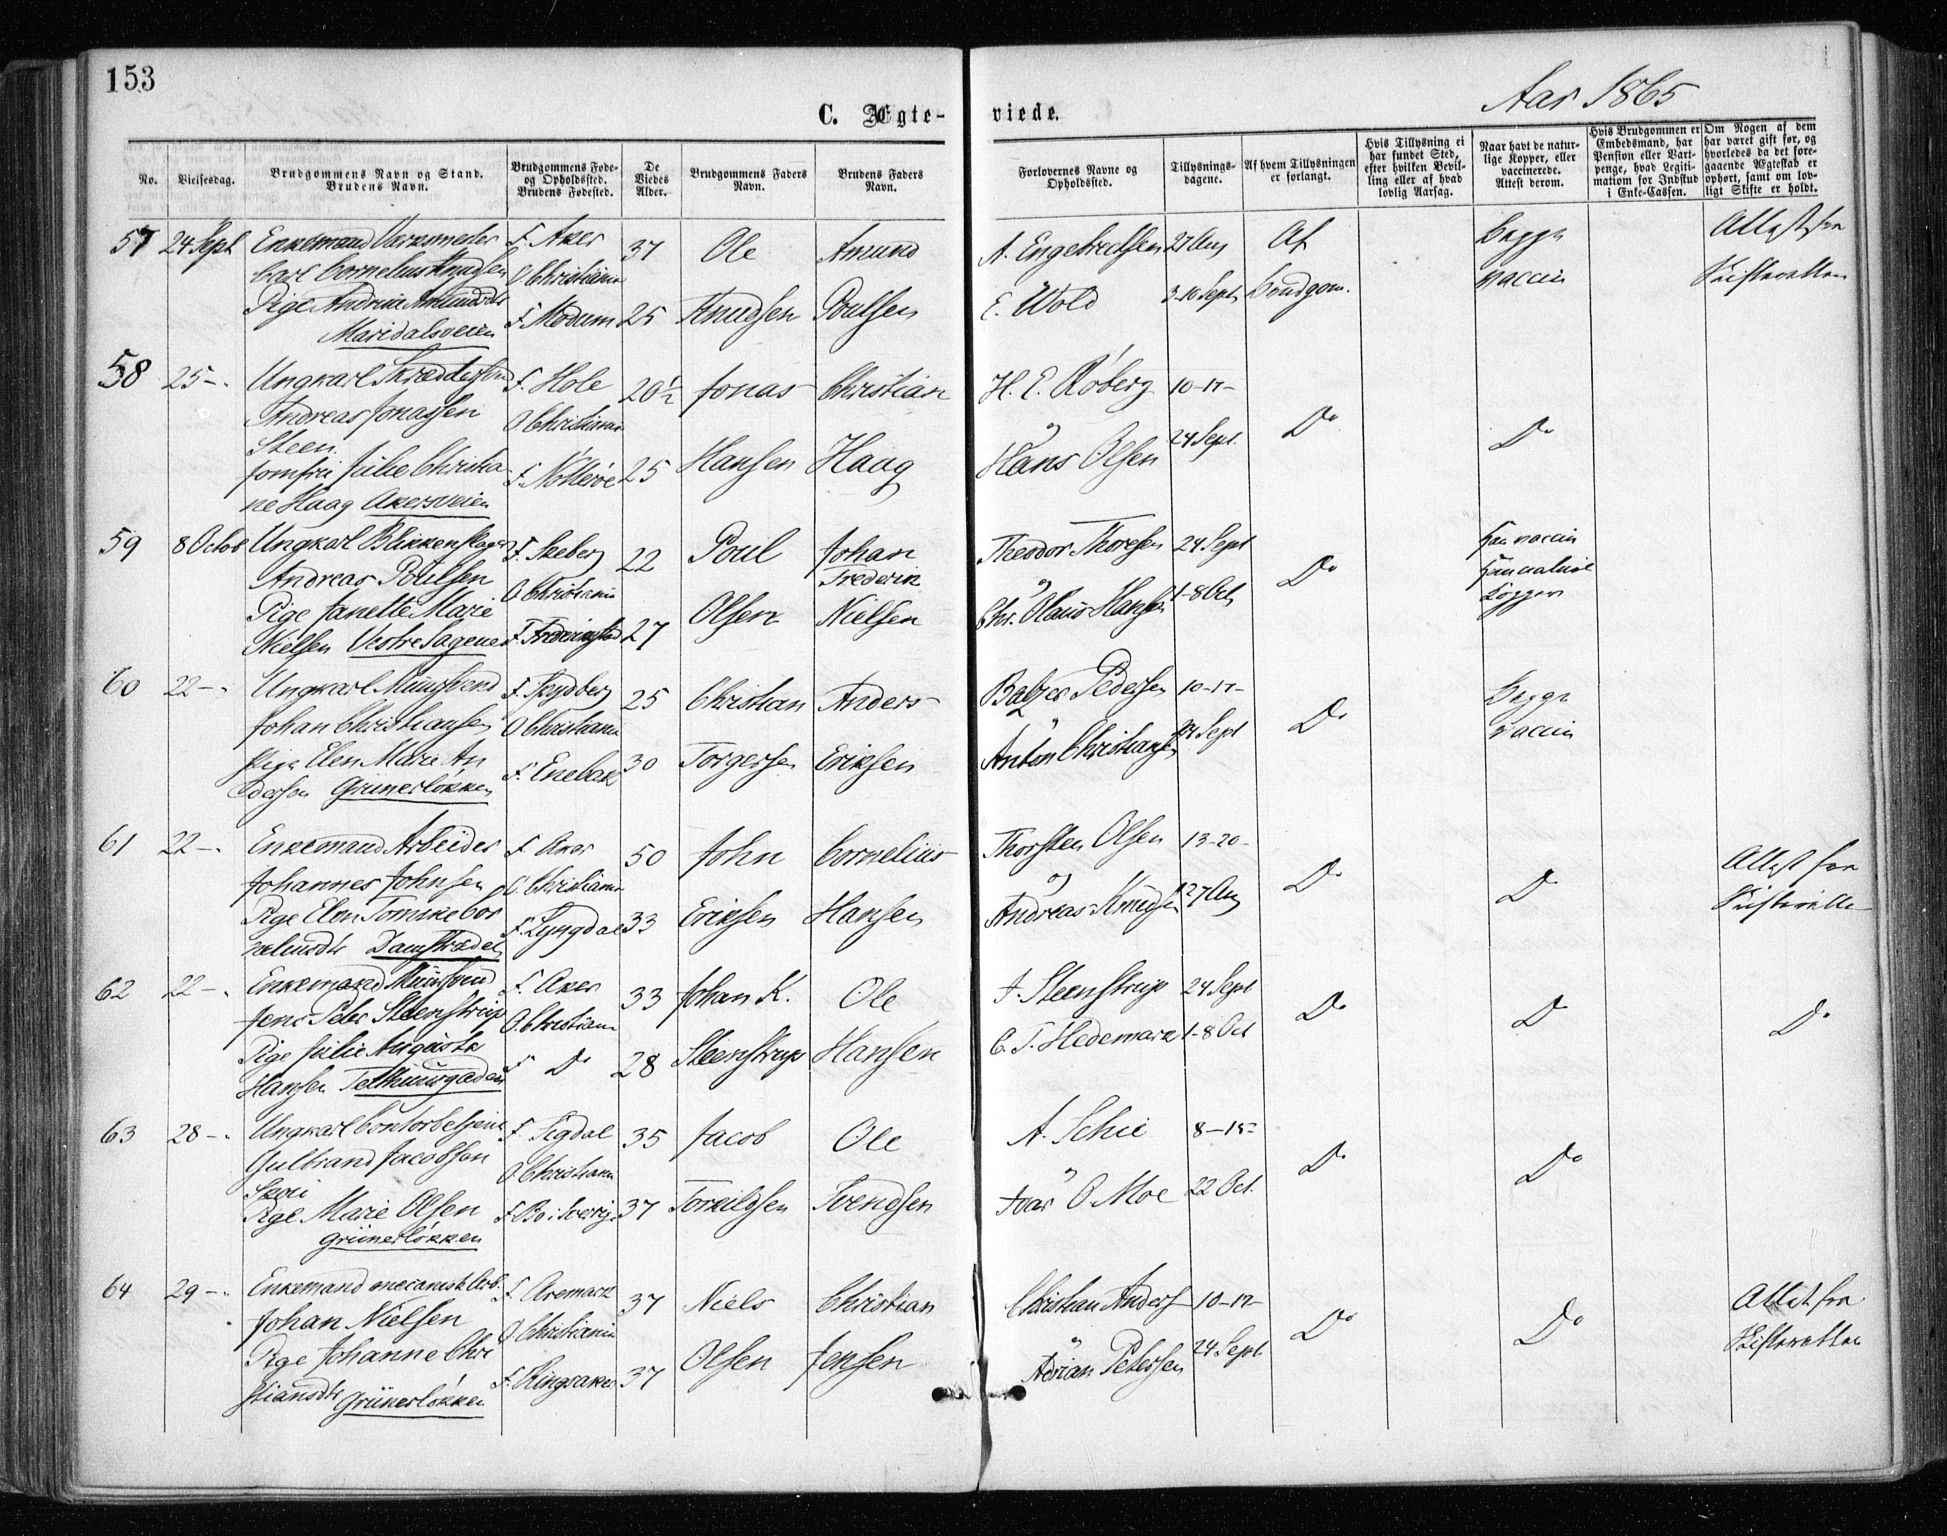 153
Aar 1865
C. Ægte-
viede.
No.
Vielsesdag.
Brudgommens Navn og Stand.
Brudens Navn.
Brudgommens Føde-
og Opholdssted.
Brudens Fødested.
De
Viedes
Alder.
Brudgommens Faders
Navn.
Brudens Faders
Navn.
Forlovernes Navne og
Opholdssted.
Tillysnings-
dagene.
Af hvem Tillysningen
er forlangt.
Hvis Tillysning ei
har fundet Sted,
efter hvilken Bevil-
ling eller af hvad
lovlig Aarsag.
Naar havt de natur-
lige Kopper, eller
vaccinerede.
Attest derom.
Hvis Brudgommen er
Embedsmand, har
Pension eller Vart-
penge, hvad Legiti-
mation for Indskud
i Enke-Cassen.
Om Nogen af dem
har været gift før, og
hvorledes da det fore-
gaaende Ægteskab er
ophørt, samt om lov-
ligt Skifte er holdt.
57 24 Sept Enkemand Værksmester F. Aker 37 Ole Amund A. Engebrethsen 27 Aug Af Begge Attest fra
Carl Cornelius Knudsen O Christiania Skifteretten
Pige Andrine Amundsdtr F. Modum 25 Knudsen Poulsen E. Wold 3-10 Sept Brudgom. vaccin
Maridalsveien
58 25 - Ungkarl Skræddersvend F. Hole 20½ Jonas Christian H. E. Røberg 10-17-
Andreas Jonassen O Christiania Do Do
Steen
Jomfru Julie Christia- F. Nötterøe 25 Hansen Haag Hans Olsen 24 Sept.
ne Haag Akersveien
59 8 Octob Ungkarl Blikkenslager F. Skeberg 22 Poul Johan Theodor Thoresen 24 Sept han vaccin
Andreas Poulsen O Christiania Frederik Do hun naturl
Pige Janette Marie Olsen Nielsen Chr. Olaus Hansen 1-8 Oct Kopper
Nielsen Vestre Sagene F. Frederikstad 27
60 22 - Ungkarl Muursvend F. Spydberg 25 Christian Anders Balzer Pedersen 10-17- Begge
Johan Christiansen O Christiania Do vaccin
Pige Elen Marie An F. Enebak 30 Torgersen Eriksen Anton Christiansen 24 Sept
dersen Grünerløkken
61 22 - Enkemand Arbeider F. Aker 50 John Cornelius Thorsten Olsen 13-20- Attest fra
Johannes Johnsen O Christiania Do Do Skifteretten
Pige Elen Tomine Cor F. Lyngdal 33 Eriksen Hansen Andreas Knudsen 27 Aug
neliusdtr Damstrædet
62 22 - Enkemand Muursvend F. Aker 33 Johan K. Ole J. Steenstrup 24 Sept
Jens Peter Steenstrup O. Christiania Do Do Do
Pige Julie Augusta F Do 28 Steenstrup Hansen C. T. Hedemark 1-8 Oct
Hansen Telthuusgaden
63 28 - Ungkarl Contorbetjent F. Sigdal 35 Jacob Ole A. Schie 8-15-
Gulbrand Jacobsen O Christiania Do Do
Pige Marie Olsen 37 Torkildsen Svendsen Ivar O Moe 22 Oct.
Grünerløkken
64 29 - Enkemand mecanisk Arb. F. Aremark 37 Niels Christian Christian Anders 10-17- Attest fra
Johan Nielsen O Christiania Do Do Skifteretten
Pige Johanne Chri F. Ringsaker 37 Olsen Jensen Adrian Petersen 24 Sept
stiansdtr Grünerløkken